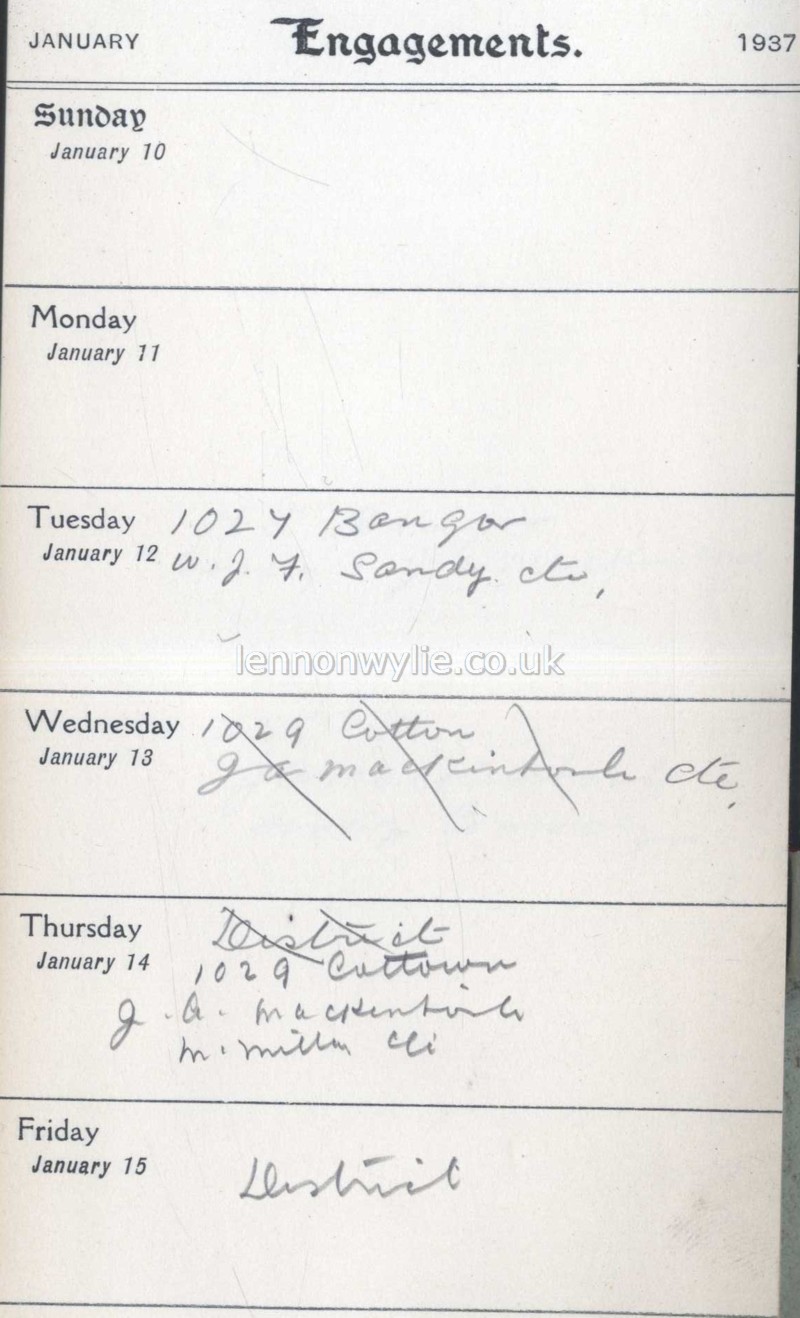 JANUARY Engagements. 1937
Sunday
January 10
Monday
January 11
Tuesday 1027 Bangor
January 12 W. J. F. Sandy. etc,
lennonwylie.co.uk
Wednesday 1029 Cotton
January 13 J A Mackintosh etc,
Thursday District
January 14 1029 Cottown
J. A. Mackintosh
District
Friday
January 15 District